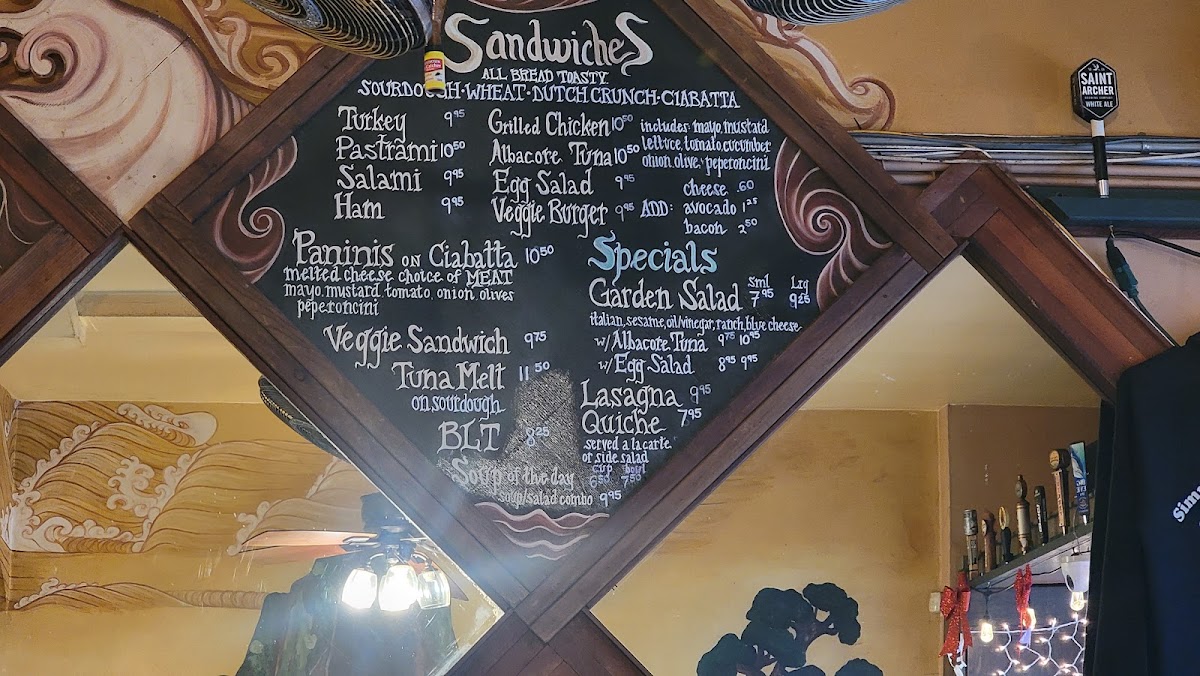 SandwicheS
ALL BREAD TOASTY
SOURDOUGH · WHEAT · DUTCH CRUNCH · CIABATTA
Turkey 9⁹⁵
Pastrami 10⁵⁰
Salami 9⁹⁵
Ham 9⁹⁵
Grilled Chicken 10⁵⁰
Albacore Tuna 10⁵⁰
Egg Salad 9⁹⁵
Veggie Burger 9⁹⁵
includes mayo, mustard
lettuce, tomato, cucumber
onion, olive, peperoncini
ADD: cheese .60
avocado 1²⁵
bacon 2⁵⁰
Paninis ON Ciabatta 10⁵⁰
melted cheese choice of MEAT
mayo, mustard, tomato, onion, olives
peperoncini
Veggie Sandwich 9⁷⁵
Tuna Melt 11⁵⁰
on sourdough
BLT 8²⁵
Soup of the day cup 6⁵⁰ bowl 7⁵⁰
soup/salad combo 9⁹⁵
Specials
Sml Lrg
Garden Salad 7⁹⁵ 9²⁵
italian, sesame, oil/vinegar, ranch, blue cheese
w/ Albacore Tuna 9⁷⁵ 10⁹⁵
w/ Egg Salad 8⁹⁵ 9⁹⁵
Lasagna 9⁹⁵
Quiche 7⁹⁵
served a la carte
or side salad
SAINT
ARCHER
WHITE ALE